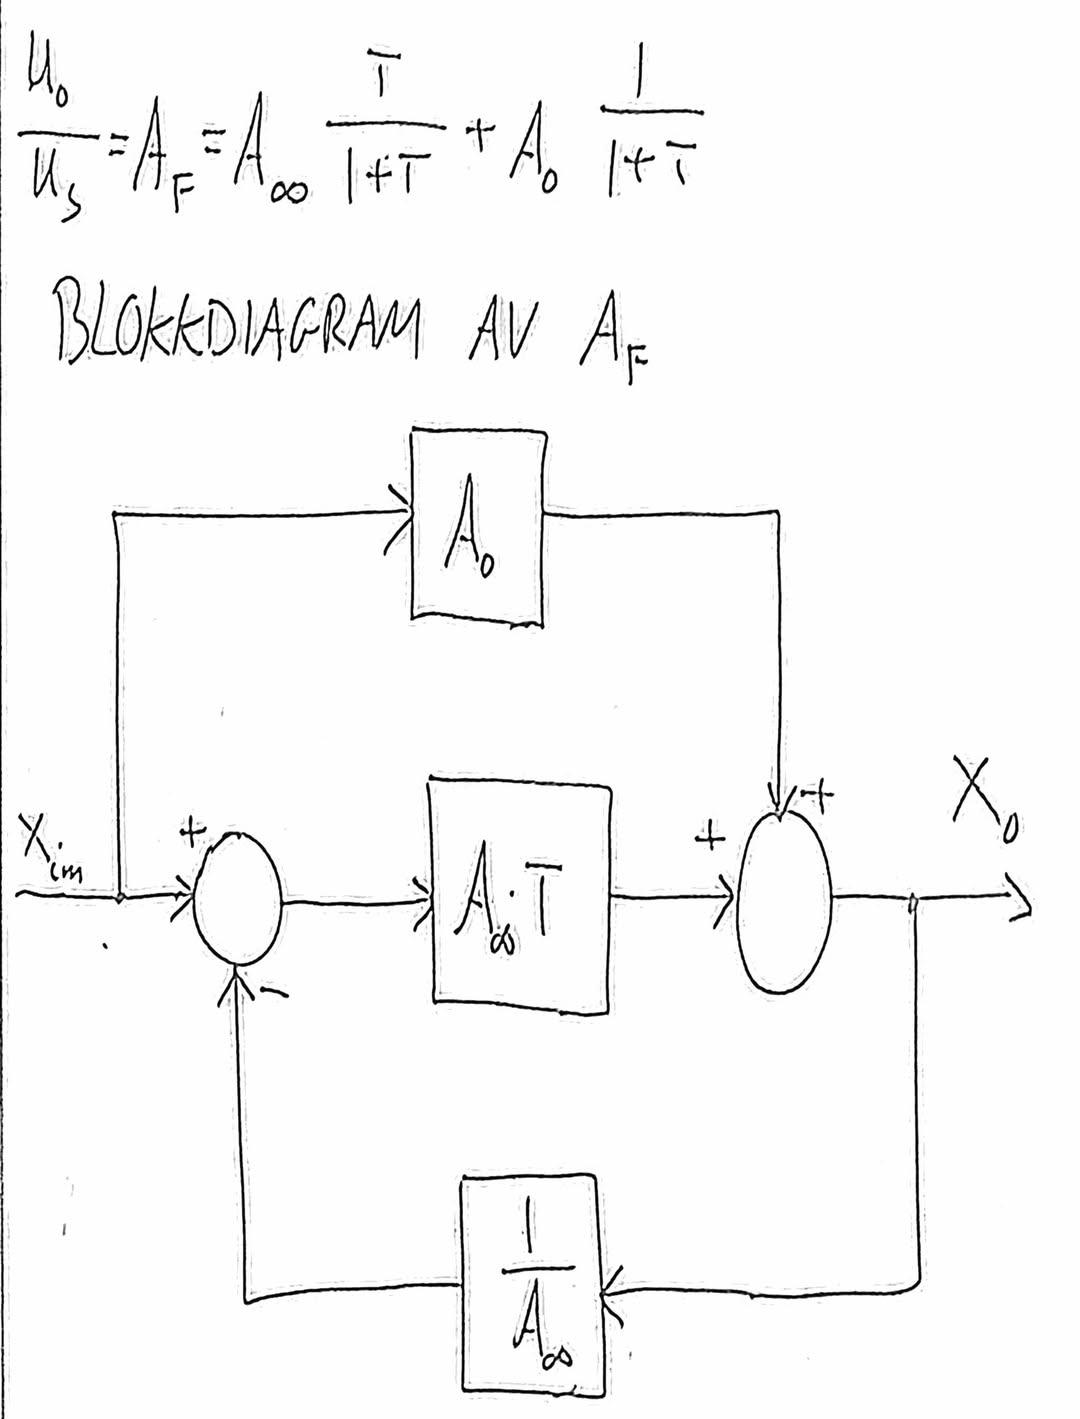 u₀/uₛ = A_F = A_∞ T/(1+T) + A₀ 1/(1+T)
BLOKKDIAGRAM AV A_F
A₀
X_im + A_∞·T + + X₀
-
1/A_∞